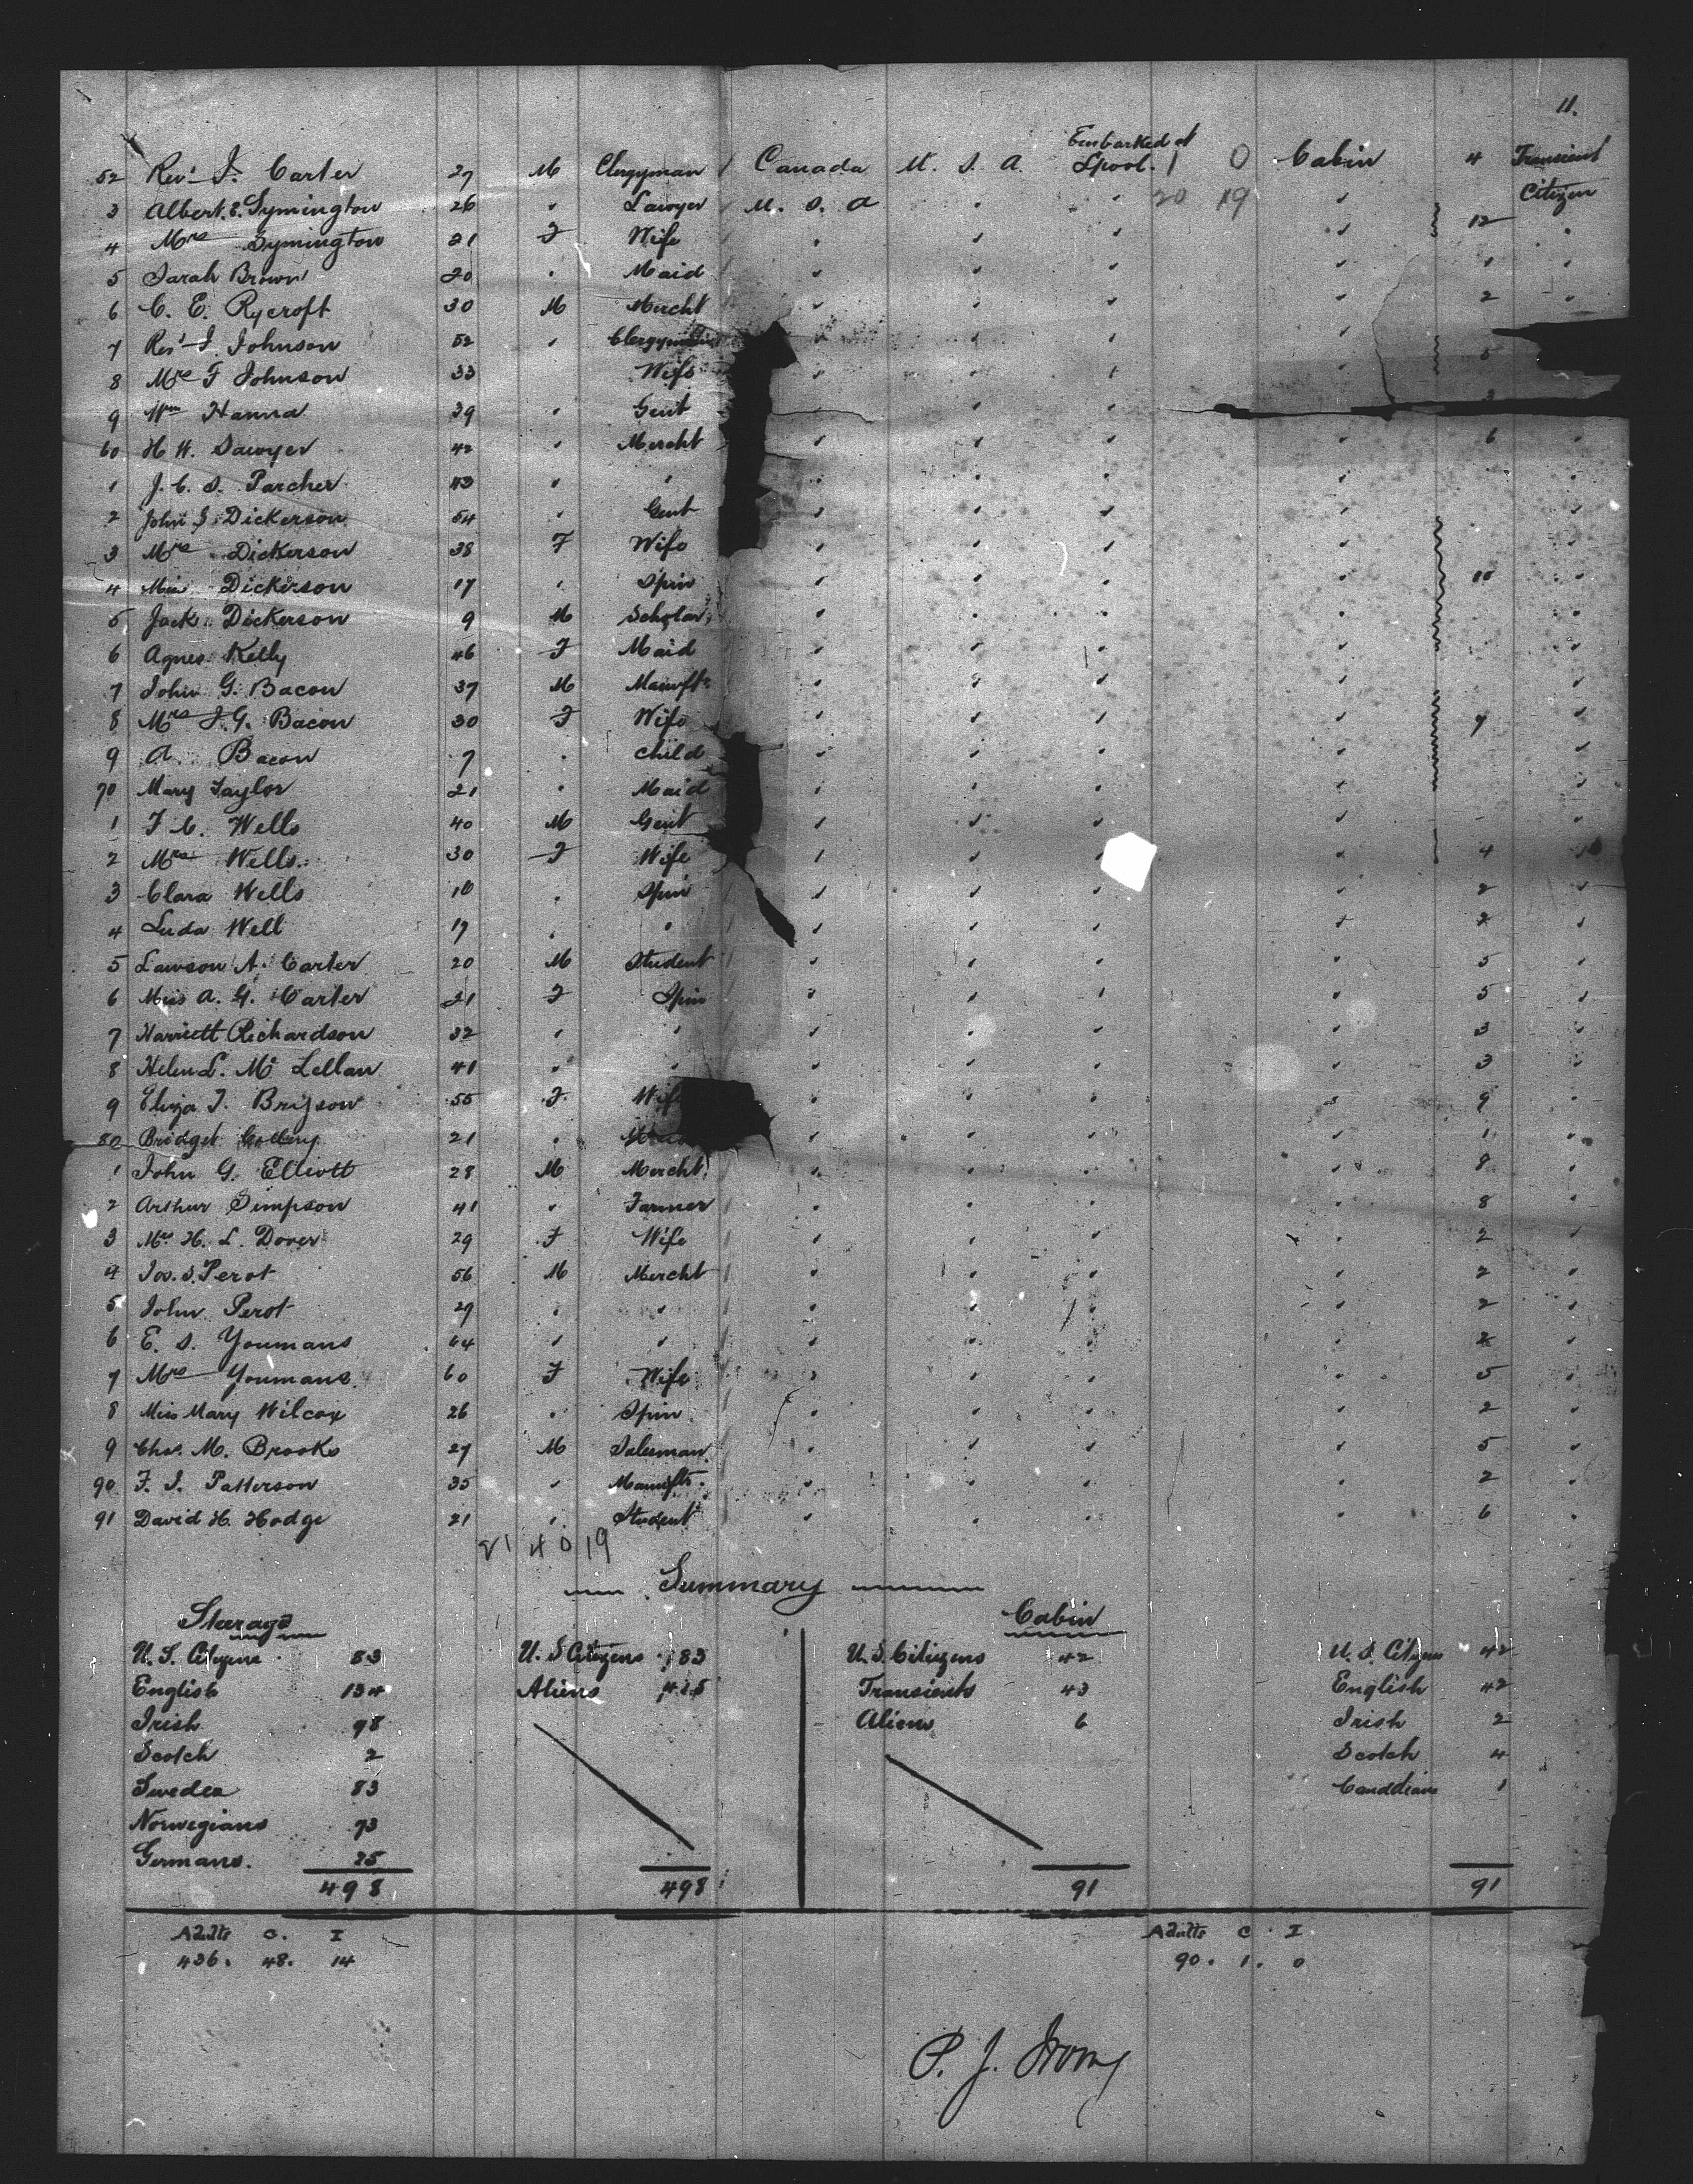 11.
Embarked at
52 Revd J. Carter 27 M Clergyman Canada U. S. A. Lpool. 1 0 Cabin 4 Transient
3 Albert. E. Symington 26 " Lawyer U. S. A " " 20 19 " Citizen
4 Mrs Symington 21 F Wife " " " " 12 "
5 Sarah Brown 20 " Maid " " " " 1 "
6 C. E. Rycroft 30 M Mercht " " " " 2 "
7 Revd J. Johnson 52 " Clergyman " " " "
8 Mrs F Johnson 33 Wife " " " " 5
9 Wm Hanna 39 " Gent " " " 3
60 H W. Sawyer 42 " Mercht " " " " 6 "
1 J. C. S. Parcher 43 " " " " " " "
2 John S. Dickerson 54 " Gent " " " " "
3 Mrs Dickerson 38 F Wife " " " " "
4 Miss Dickerson 17 " Spin " " " " 10 "
5 Jack Dickerson 9 M Scholar " " " " "
6 Agnes Kelly 46 F Maid " " " " "
7 John G. Bacon 37 M Manuftr " " " " "
8 Mrs J. G. Bacon 30 F Wife " " " " 7 "
9 A. Bacon 7 " Child " " " " "
70 Mary Taylor 21 " Maid " " " " "
1 F. C. Wells 40 M Gent " " " " "
2 Mrs Wells 30 F Wife " " " " 4 "
3 Clara Wells 10 " Spin " " " " 2 "
4 Luda Well 19 " " " " " " 2 "
5 Lawson A. Carter 20 M Student " " " " 5 "
6 Miss A. G. Carter 21 F Spin " " " " 5 "
7 Harriett Richardson 32 " " " " " " 3 "
8 Helen L. Mc Lellan 41 " " " " " " 3 "
9 Eliza J. Bryson 55 F Wife " " " " 9 "
80 Bridget 21 " " " " " 1 "
1 John G. Elliott 28 M Mercht " " " " 8 "
2 Arthur Simpson 41 " Farmer " " " " 8 "
3 Mrs H. L. Dover 29 F Wife " " " " 2 "
4 Jos. S. Perot 56 M Mercht " " " " 2 "
5 John Perot 29 " " " " " " 2 "
6 E. S. Youmans 64 " " " " " " 2 "
7 Mrs Youmans 60 F Wife " " " " 5 "
8 Miss Mary Wilcox 26 " Spin " " " " 2 "
9 Chas. M. Brooks 27 M Salesman " " " " 5 "
90 F. J. Patterson 35 " Manuftr. " " " " 2 "
91 David H. Hodge 21 " Student " " " " 6 "
21 4 0 19
Summary
Steerage Cabin
U. S. Citizens 83 U. S Citizens 83 U. S. Citizens 42 U. S. Citizens 42
English 134 Aliens 415 Transients 43 English 42
Irish 98 Aliens 6 Irish 2
Scotch 2 Scotch 4
Swedes 83 Canadians 1
Norwegians 73
Germans. 25
498 498 91 91
Adults C. I Adults C I
436. 48. 14 90. 1. 0
P. J.